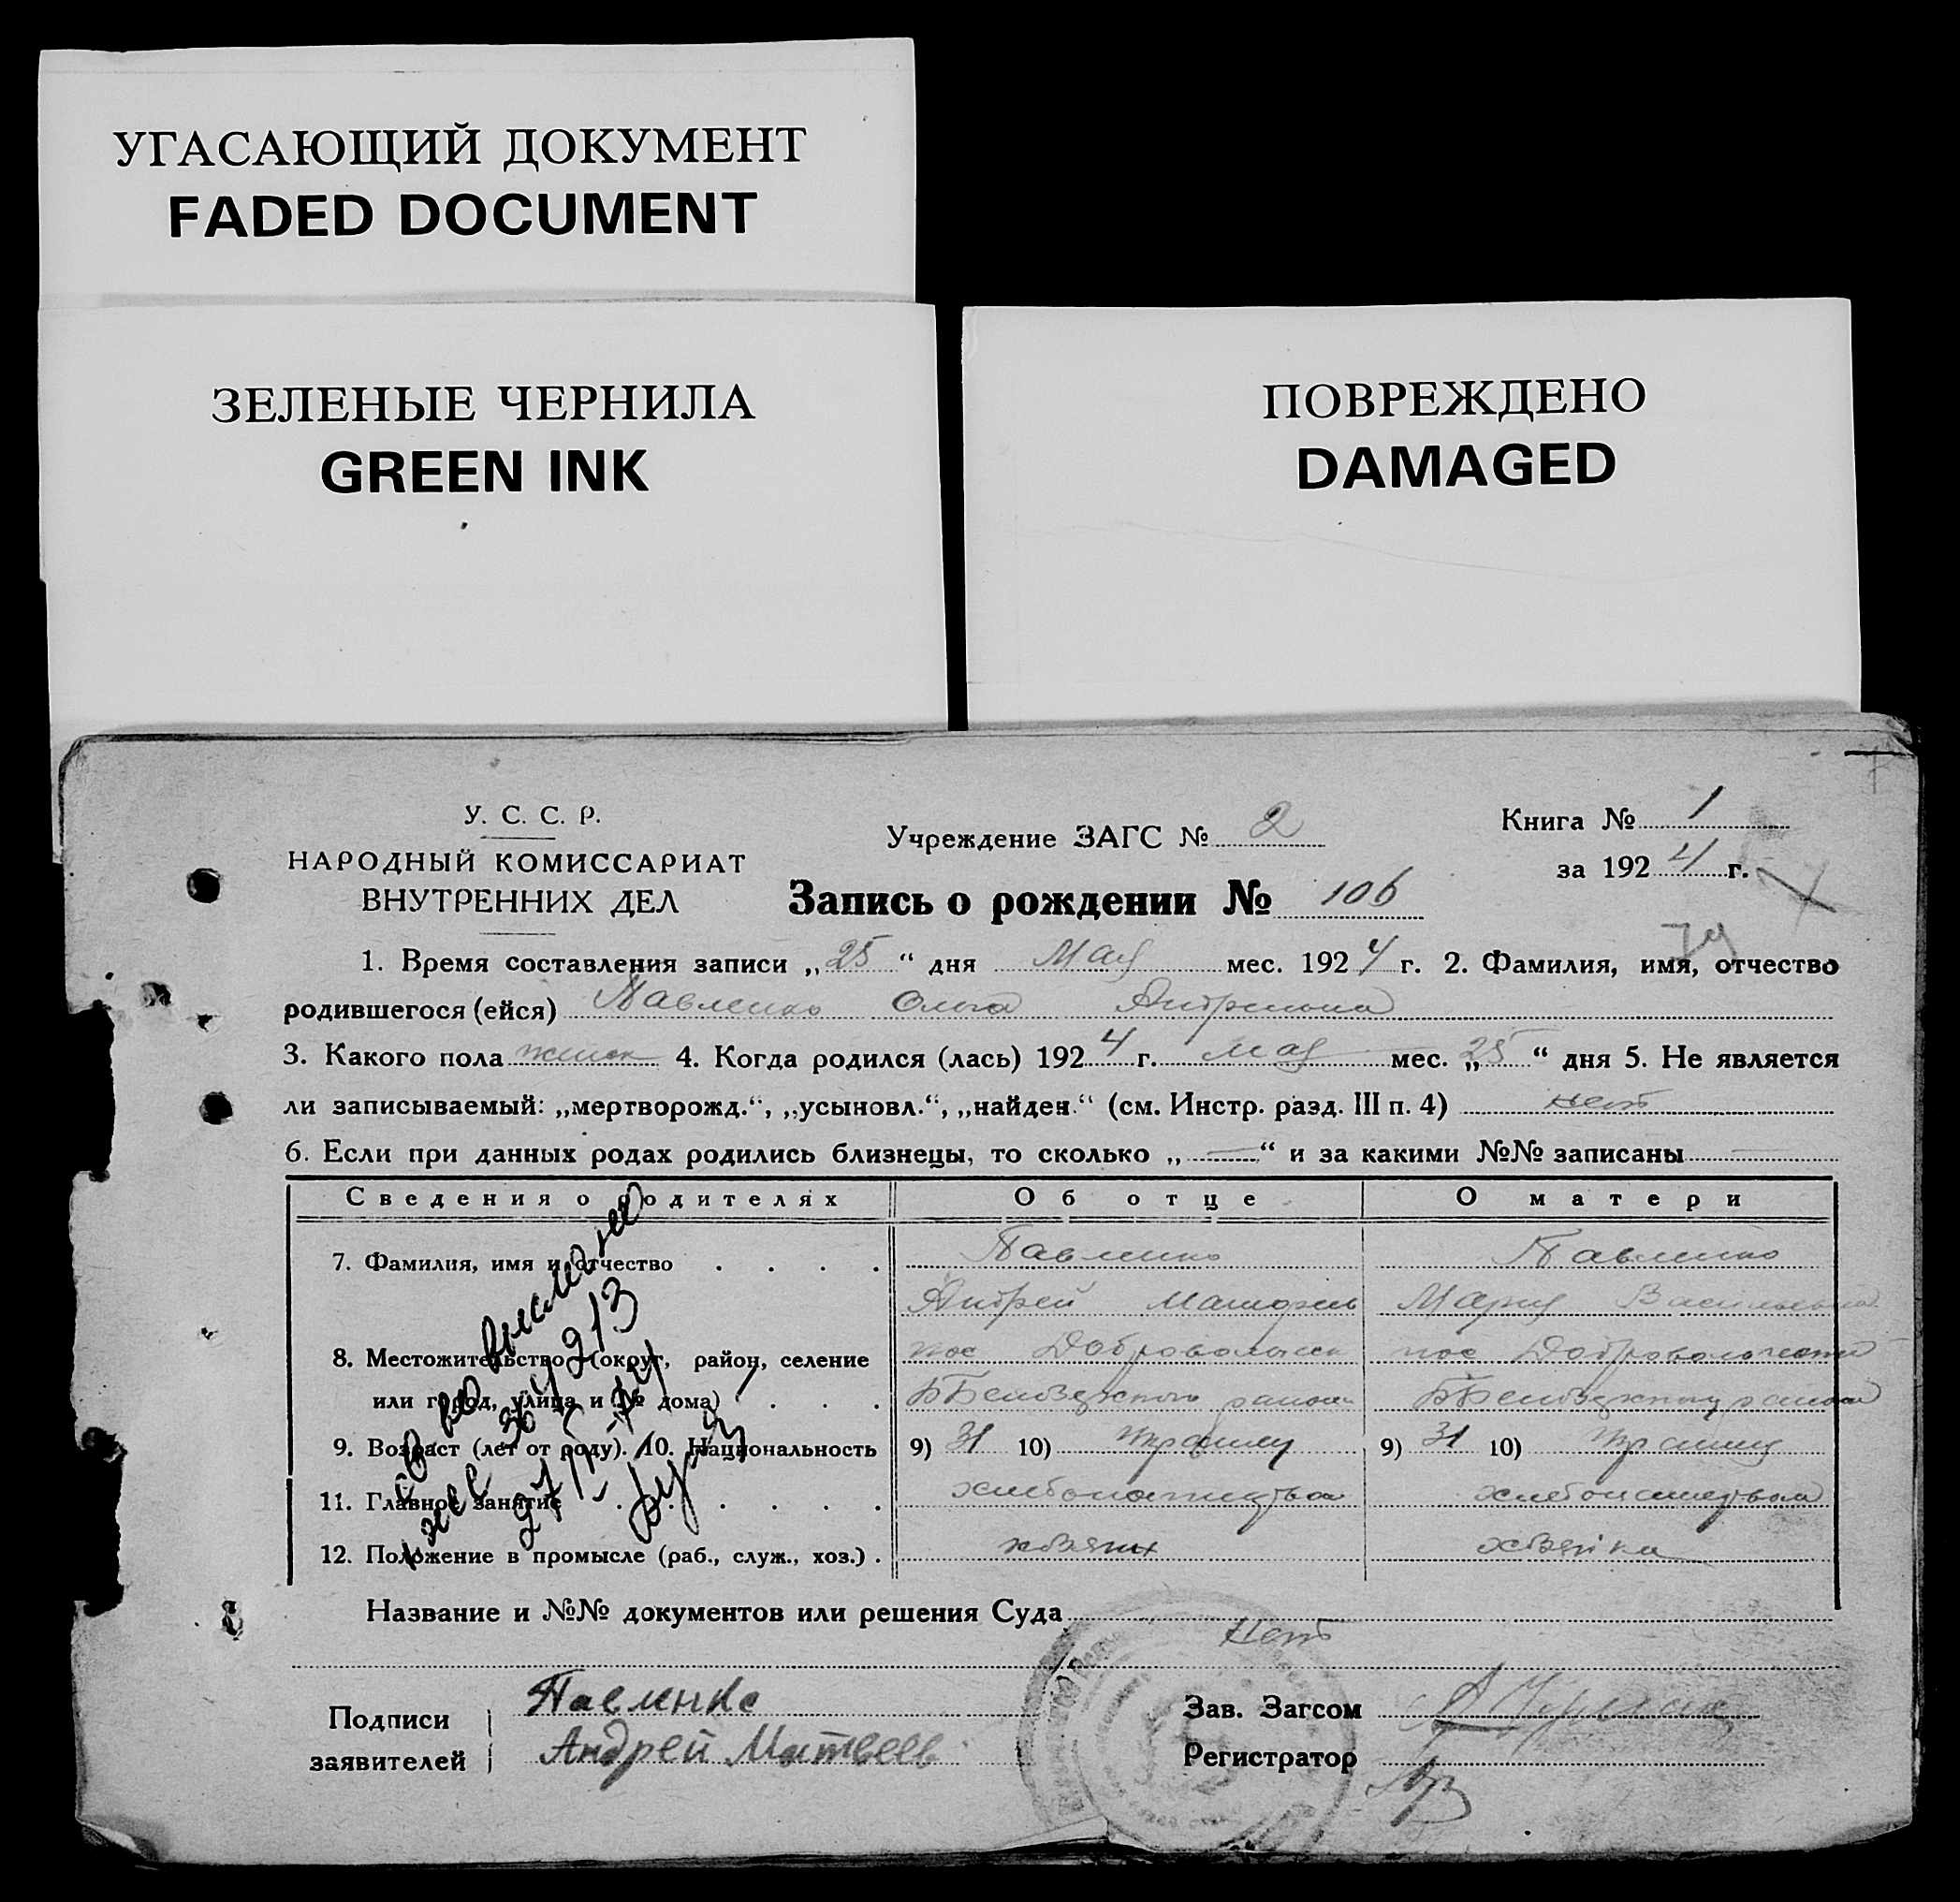 УГАСАЮЩИЙ ДОКУМЕНТ
FADED DOCUMENT
ЗЕЛЕНЫЕ ЧЕРНИЛА
GREEN INK
ПОВРЕЖДЕНО
DAMAGED
У. С. С. Р.
НАРОДНЫЙ КОМИССАРИАТ
ВНУТРЕННИХ ДЕЛ
Учреждение ЗАГС № 2
Книга № 1
за 1924 г.
Запись о рождении № 106
1. Время составления записи „25“ дня Мая мес. 1924 г. 2. Фамилия, имя, отчество
родившегося (ейся) Павленко Ольга
3. Какого пола женск 4. Когда родился (лась) 1924 г. мая мес. „25“ дня 5. Не является
ли записываемый: „мертворожд.“, „усыновл.“, „найден.“ (см. Инстр. разд. III п. 4) нет
6. Если при данных родах родились близнецы, то сколько „—“ и за какими №№ записаны —
Сведения о родителях Об отце О матери
7. Фамилия, имя и отчество Павленко Павленко
Андрей Мария Васильевна
8. Местожительство (округ, район, селение пос пос
или город, улица и № дома) района района
9. Возраст (лет от роду). 10. Национальность 9) 31 10) 9) 31 10)
11. Главное занятие
12. Положение в промысле (раб., служ., хоз.) . хозяин хозяйка
Название и №№ документов или решения Суда
нет
Подписи заявителей Павленко
Андрей Матвеев
Зав. Загсом
Регистратор